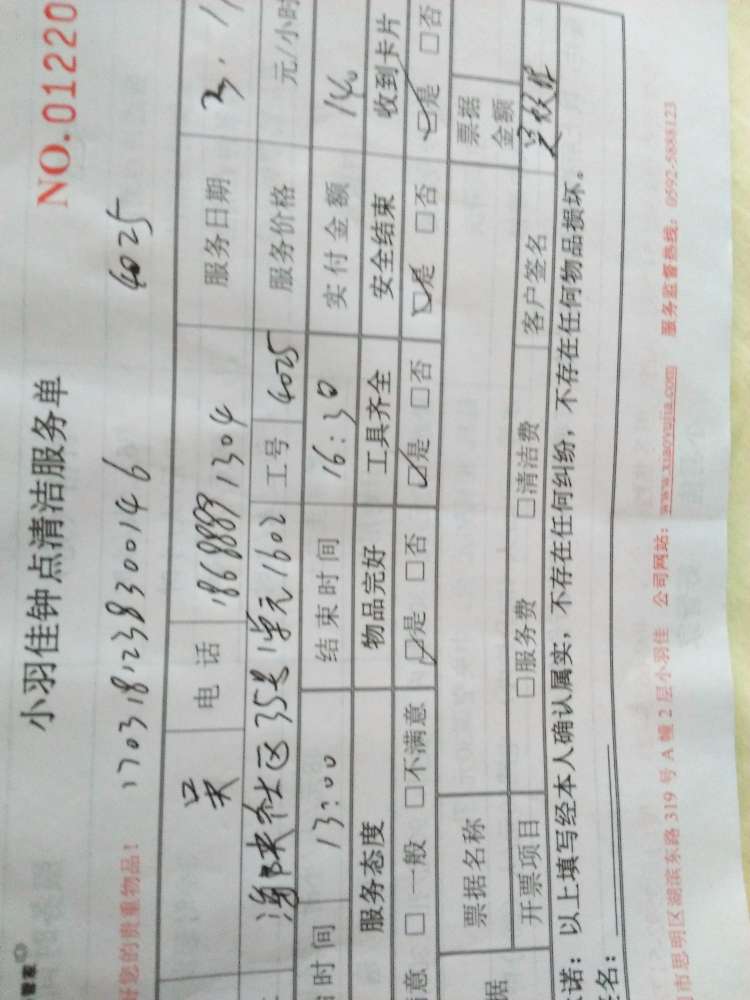 管家
小羽佳钟点清洁服务单
NO.01220
1703181238300146 4025
好您的贵重物品!
吴 电话 18688891304 服务日期 3.1
社区35号1单元1602 工号 4025 服务价格 元/小时
时间 13:00 结束时间 16:30 实付金额 140
服务态度 物品完好 工具齐全 安全结束 收到卡片
意 □一般 □不满意 ☑是 □否 ☑是 □否 ☑是 □否 ☑是 □否
据 票据名称 票据金额
开票项目 □服务费 □清洁费 客户签名
诺:以上填写经本人确认属实,不存在任何纠纷,不存在任何物品损坏。
名:
市思明区湖滨东路 319 号 A 幢 2 层小羽佳 公司网站:www.xiaoyujia.com 服务监督热线:0592-5688123